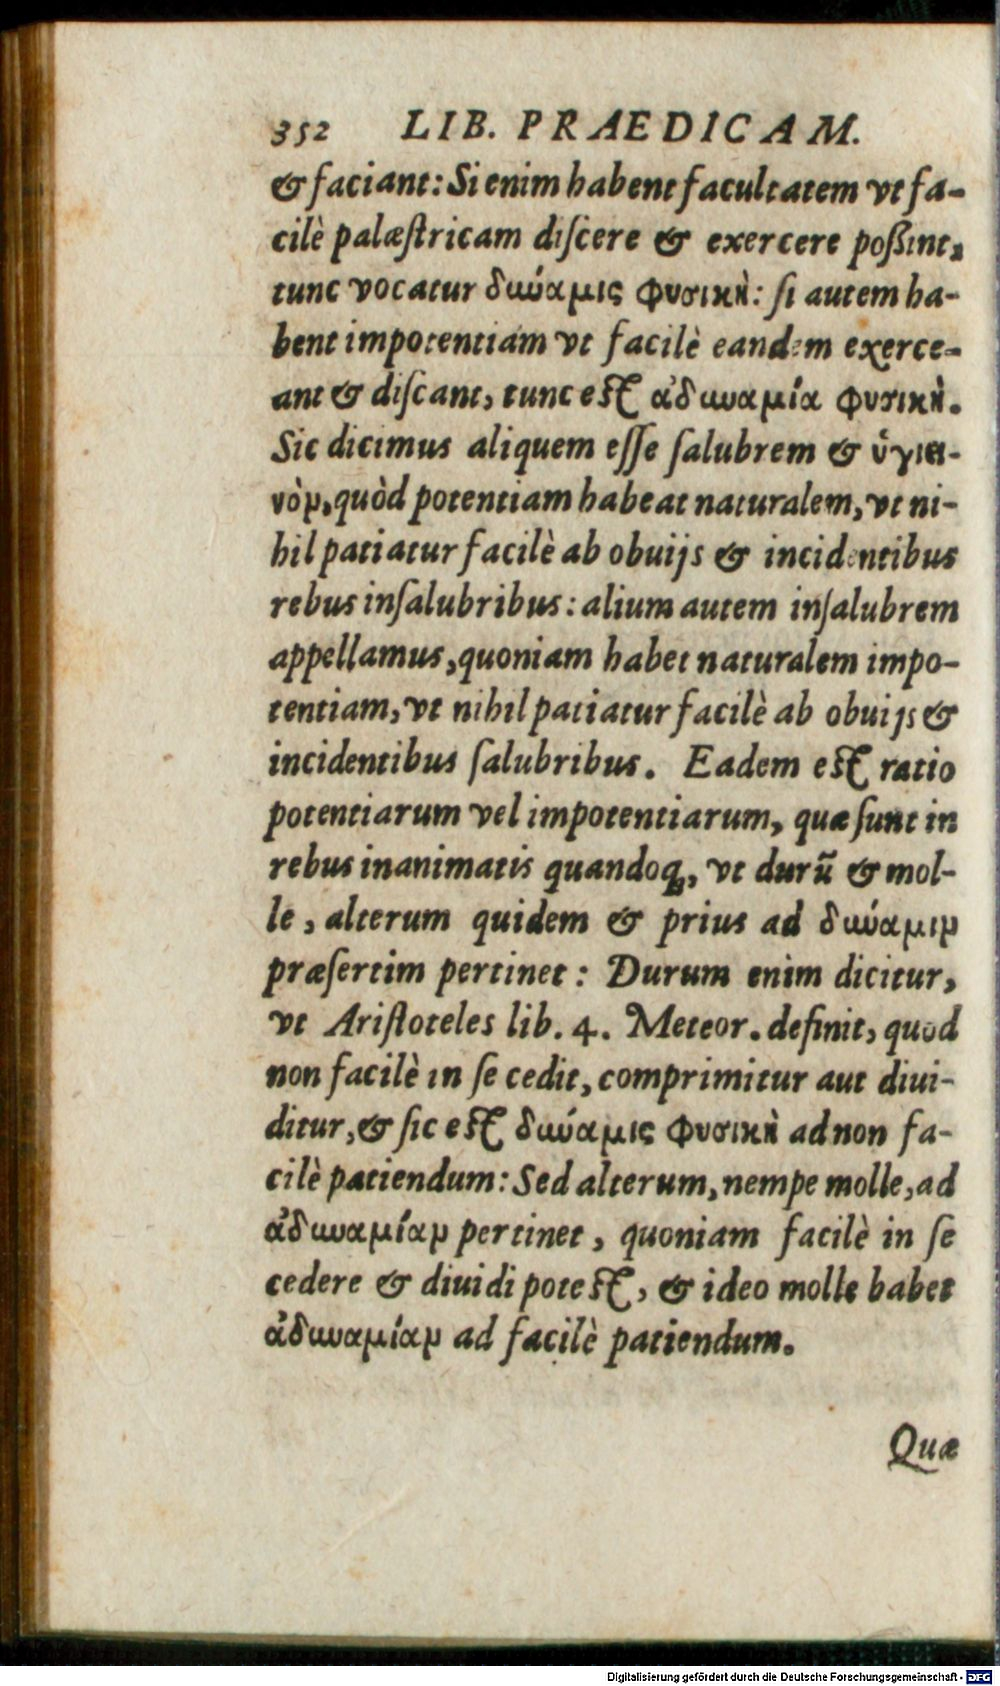 352 LIB. PRAEDICAM.
& faciant: Si enim habent facultatem vt fa-
cilè palæstricam discere & exercere poßint,
tunc vocatur δωύαμις φυσικὴ: si autem ha-
bent impotentiam vt facilè eandem exerce-
ant & discant, tunc est ἀδωναμία φυσικὴ.
Sic dicimus aliquem esse salubrem & ὑγιει-
νὸν, quòd potentiam habeat naturalem, vt ni-
hil patiatur facilè ab obuijs & incidentibus
rebus insalubribus: alium autem insalubrem
appellamus, quoniam habet naturalem impo-
tentiam, vt nihil patiatur facilè ab obuijs &
incidentibus salubribus. Eadem est ratio
potentiarum vel impotentiarum, quæ sunt in
rebus inanimatis quandoq;, vt durũ & mol-
le, alterum quidem & prius ad δύναμιν
præsertim pertinet: Durum enim dicitur,
vt Aristoteles lib. 4. Meteor. definit, quod
non facilè in se cedit, comprimitur aut diui-
ditur, & sic est δύναμις φυσικὴ ad non fa-
cilè patiendum: Sed alterum, nempe molle, ad
ἀδυναμίαν pertinet, quoniam facilè in se
cedere & diuidi potest, & ideo molle habet
ἀδυναμίαν ad facilè patiendum.
Quæ
Digitalisierung gefördert durch die Deutsche Forschungsgemeinschaft - DFG